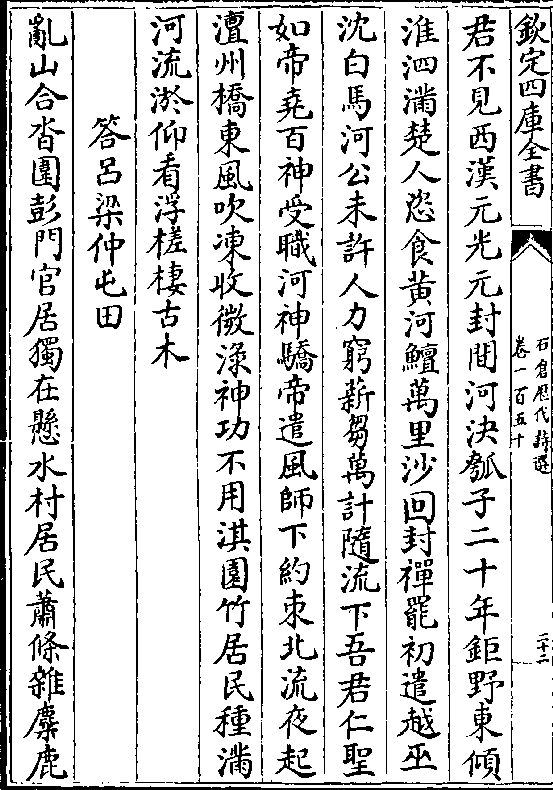 欽定四庫全書
石倉歷代詩選
卷一百五十
二十二
君不見西漢元光元封間河決瓠子二十年鉅野東傾
淮泗滿楚人恣食黃河鱣萬里沙回封禪罷初遣越巫
沈白馬河公未許人力窮薪芻萬計隨流下吾君仁聖
如帝堯百神受職河神驕帝遣風師下約束北流夜起
澶州橋東風吹凍收微淥神功不用淇園竹居民種滿
河流淤仰看浮槎棲古木
答呂梁仲屯田
亂山合沓圍彭門官居獨在懸水村居民蕭條雜麋鹿